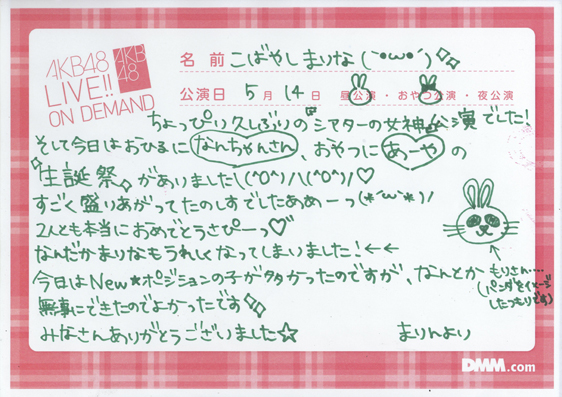 AKB48
LIVE!!
ON DEMAND
AKB
48
名前 こばやしまりな(´･ω･`)
公演日 5月14日 昼公演・おやつ公演・夜公演
ちょっぴり久しぶりの"シアターの女神"公演でした!
そして今日はおひるになんちゃんさん、おやつにあーやの
"生誕祭"がありました\(^O^)/\(^O^)/♡
すごく盛りあがっててたのしすでしたあめーっ(*´ω`*)/
2人とも本当におめでとうさぴーっ♡
なんだかまりなもうれしくなってしまいました!←←
今日はNew★ポジションの子が多かったのですが、なんとか
無事にできたのでよかったです
みなさんありがとうございました☆
まりんより
もりさん....
(パンダをイメージ
したつもりです)
DMM.com